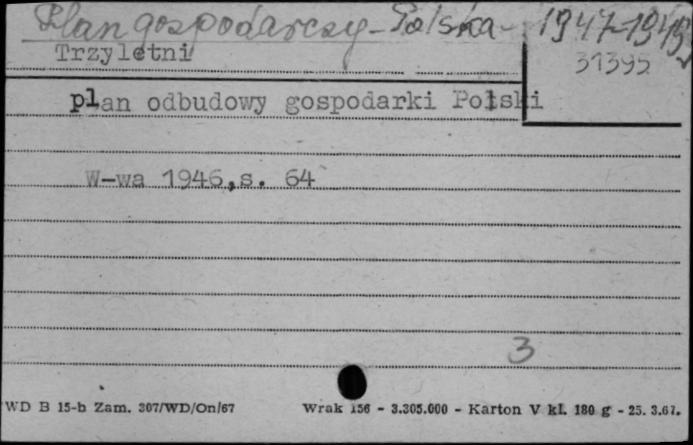 Plan gospodarczy - Polska - 1947-1949
Trzyletni
31395
plan odbudowy gospodarki Polski
W-wa 1946,s. 64
3
WD B 15-b Zam. 307/WD/On/67 Wrak 156 - 3.305.000 - Karton V kl. 180 g - 25. 3.67.